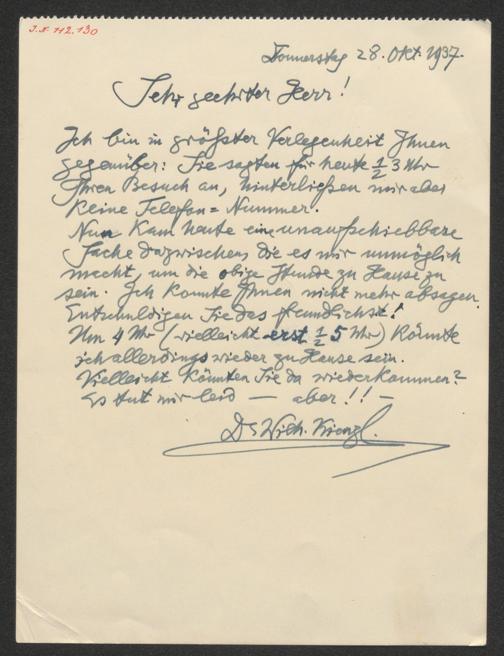 I.N. 112.130
Donnerstag 28. Okt. 1937.
Sehr geehrter Herr!
Ich bin in größter Verlegenheit Ihnen
gegenüber: Sie sagten für heute ½ 3 Uhr
Ihren Besuch an, hinterließen mir aber
keine Telefon=Nummer.
Nun kam heute eine unaufschiebbare
Sache dazwischen, die es mir unmöglich
macht, um die obige Stunde zu Hause zu
sein. Ich konnte Ihnen nicht mehr absagen.
Entschuldigen Sie das freundlichst!
Um 4 Uhr (vielleicht erst ½ 5 Uhr) könnte
ich allerdings wieder zu Hause sein.
Vielleicht könnten Sie da wiederkommen?
Es tut mir leid — aber!! —
Dr Wilh. Kienzl.